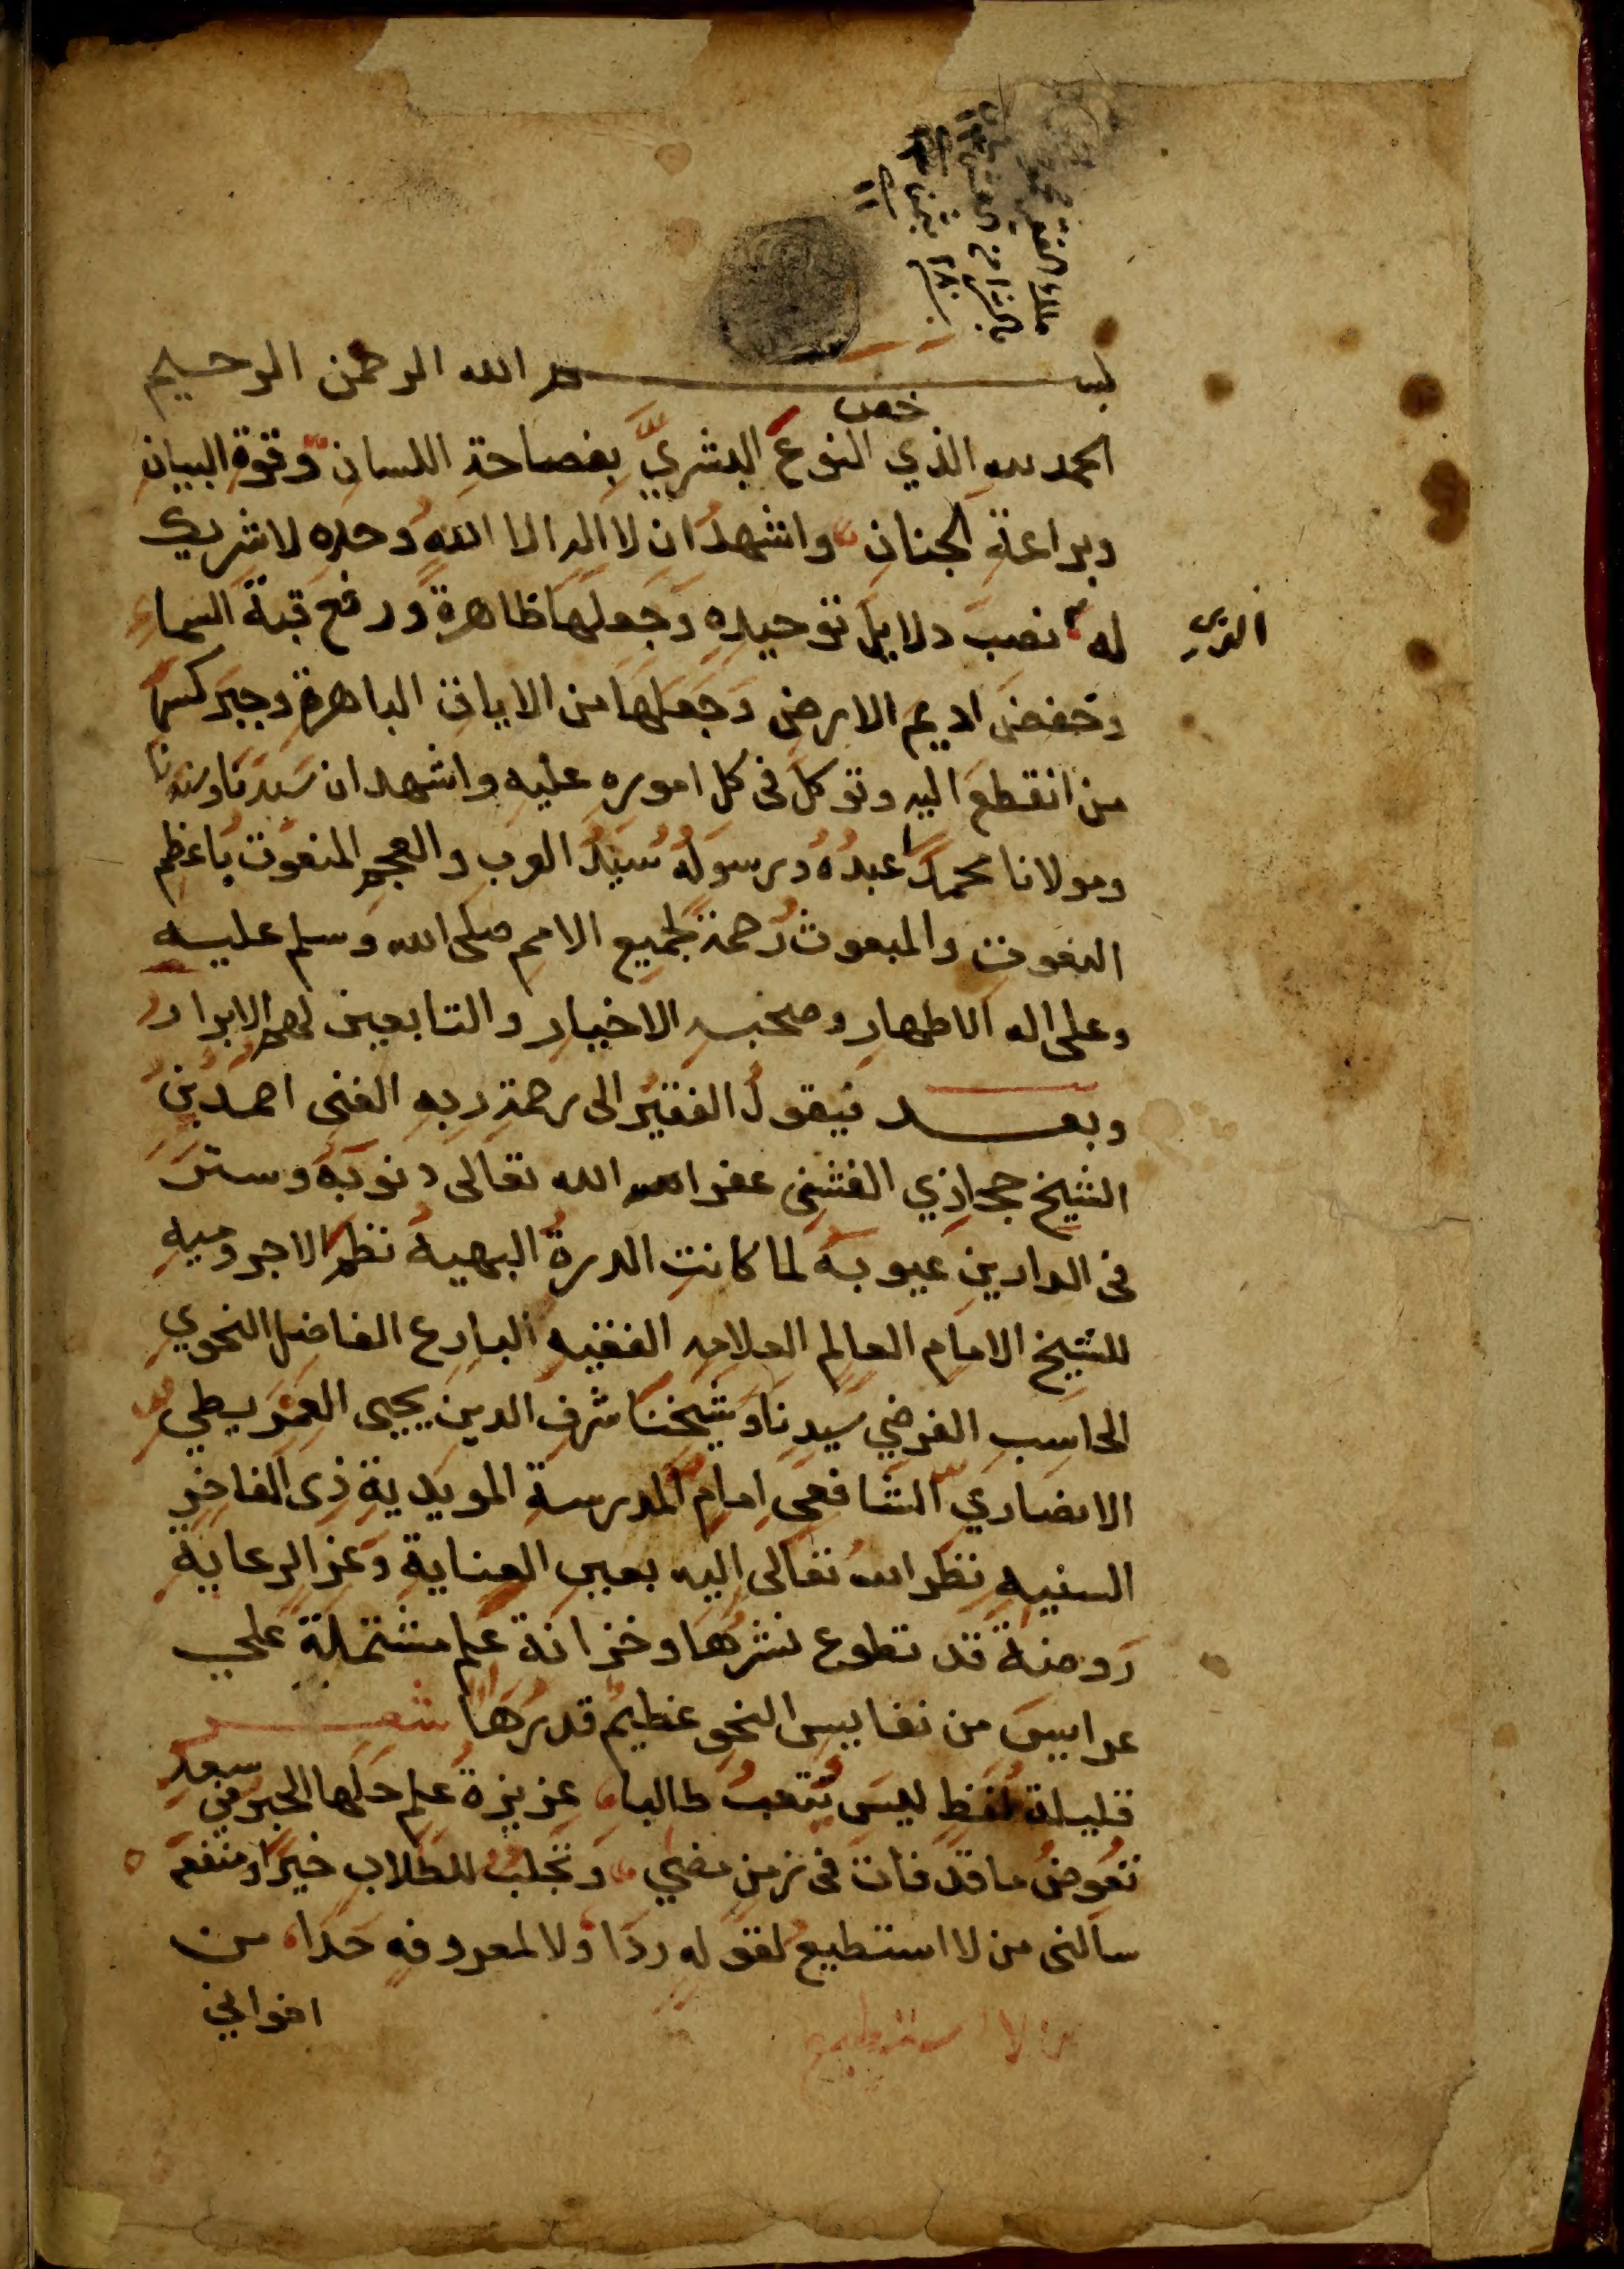 بسم الله الرحمن الرحيم
خص
الحمد لله الذي النوعَ البشريَّ بفصاحةِ اللسانِ وقوةِ البيانِ
وبراعةِ الجنانِ واشهدُ ان لا اله الا اللهُ وحده لا شريك
له نصبَ دلايلَ توحيدِه وجعلها ظاهرةً ورفع قبة السماءِ
الذي
وخفض اديم الارضِ وجعلها من الايات الباهرة وجبر كسر
من انقطع اليه وتوكل فى كل اموره عليه واشهد ان سيدنا وسندنا
ومولانا محمداً عبدُهُ ورسولُهُ سيدُ العرب والعجم المنعوت باعظم
النعوت والمبعوث رحمة لجميع الامم صلى الله وسلم عليه
وعلى اله الاطهار وصحبه الاخيار والتابعين لهم الابرار
وبعد فيقولُ الفقيرُ الى رحمة ربه الغنى احمدُ بنُ
الشيخ حجازي الفشنى غفر الله تعالى ذنوبه وسترَ
فى الدارين عيوبه لما كانت الدرة البهية نظم الاجروميه
للشيخ الامام العالم العلامه الفقيه البارع الفاضل النحوي
الحاسب الفرضي سيدنا وشيخنا شرف الدين يحيى العمريطي
الانصاري الشافعى امام المدرسة المويدية ذى الفاخر
السنيه نظر الله تعالى اليه بعين العناية وعز الرعاية
روضة قد تطوع نشرها وخزانة علم مشتملة على
عرايس من نفايس النحو عظيمُ قدرُها شعر
قليلة لفظ ليس تتعب طالبا غزيزة علم حلها الحبر فى سعد
تعوض ما قد فات فى زمن مضى وتجلب للطلاب خيرا ومنفعه
سالنى من لا استطيع لقوله ردا ولا لمعروفه حدا من
اخواني
من لا استطيع